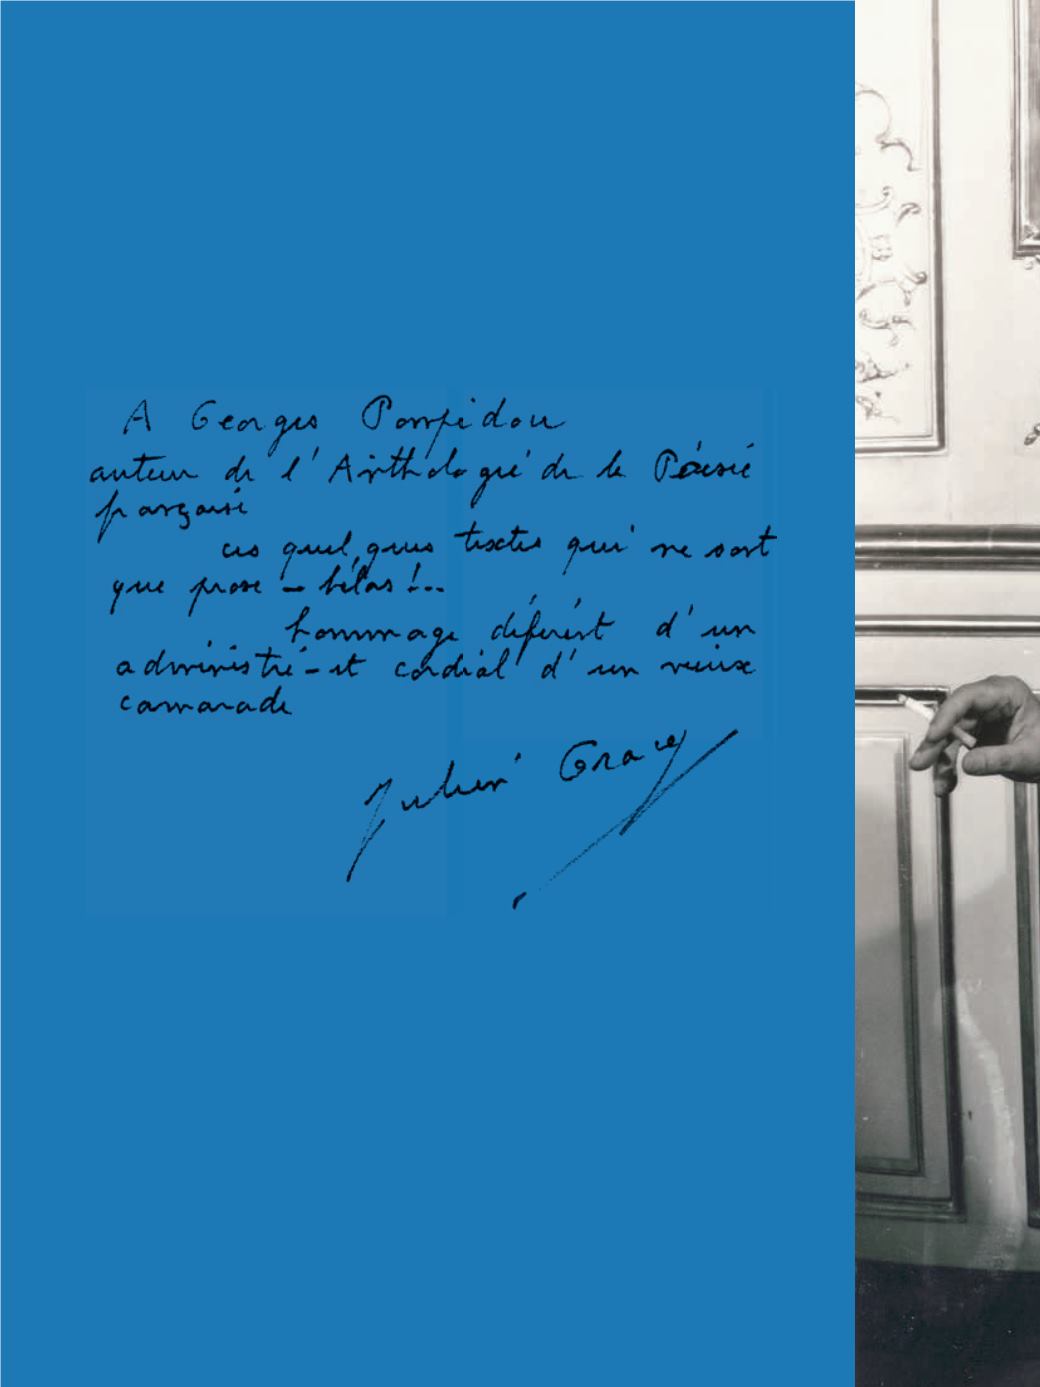 A Georges Pompidou
auteur de l'Anthologie de la Poésie
française
ces quelques textes qui ne sont
que prose – hélas !...
hommage déférent d'un
administré – et cordial d'un vieux
camarade
Julien Gracq